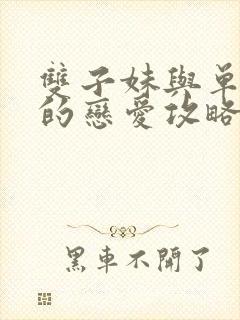 雙子妹與單
的戀愛攻略
黑車不開了